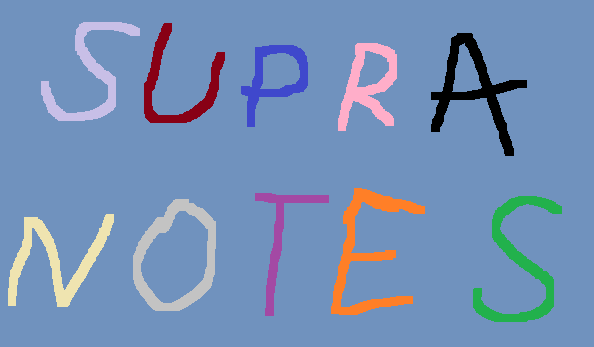 SUPRA
NOTES